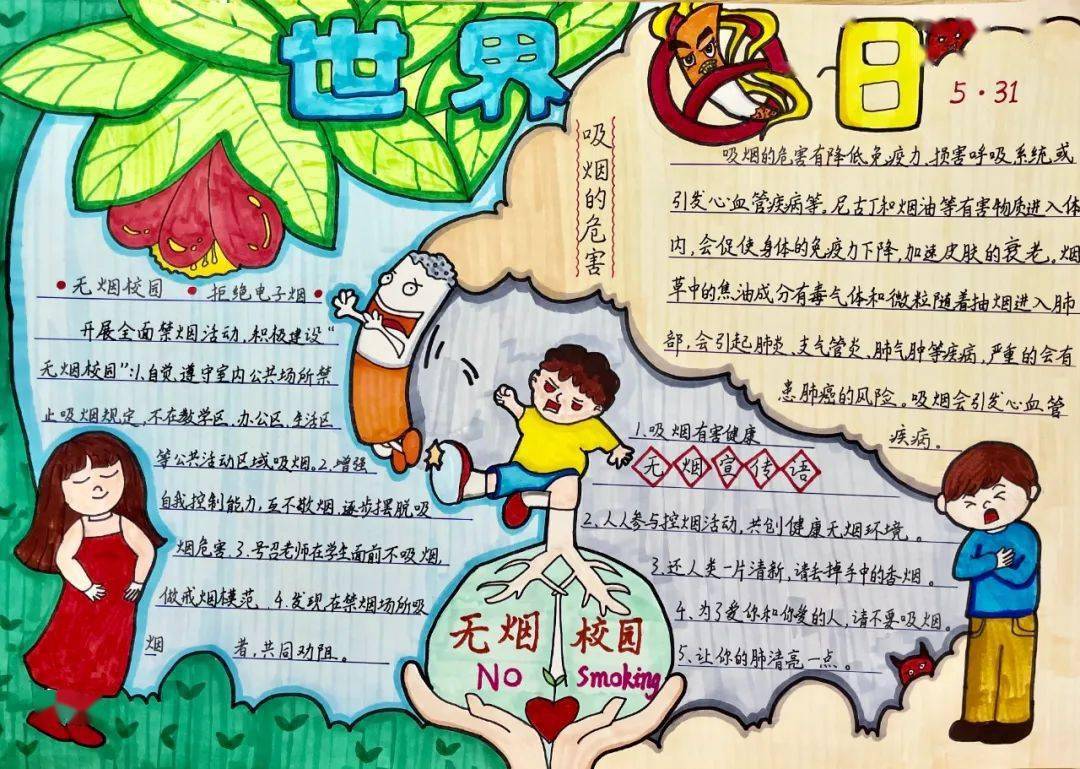 世界
日
5·31
吸烟的危害
吸烟的危害有降低免疫力、损害呼吸系统或
引发心血管疾病等。尼古丁和烟油等有害物质进入体
内,会促使身体的免疫力下降,加速皮肤的衰老。烟
草中的焦油成分有毒气体和微粒随着抽烟进入肺
部,会引起肺炎、支气管炎、肺气肿等疾病,严重的会有
患肺癌的风险。吸烟会引发心血管
疾病。
•无烟校园 •拒绝电子烟•
开展全面禁烟活动,积极建设“
无烟校园”:1.自觉遵守室内公共场所禁
止吸烟规定,不在教学区、办公区、生活区
等公共活动区域吸烟。2.增强
自我控制能力,互不敬烟,逐步摆脱吸
烟危害。3.号召老师在学生面前不吸烟,
做戒烟模范。4.发现在禁烟场所吸
烟 者,共同劝阻。
1.吸烟有害健康
无烟宣传语
2.人人参与控烟活动,共创健康无烟环境。
3.还人类一片清新,请去掉手中的香烟。
4.为了爱你和你爱的人,请不要吸烟。
5.让你的肺清亮一点。
无烟校园
No Smoking